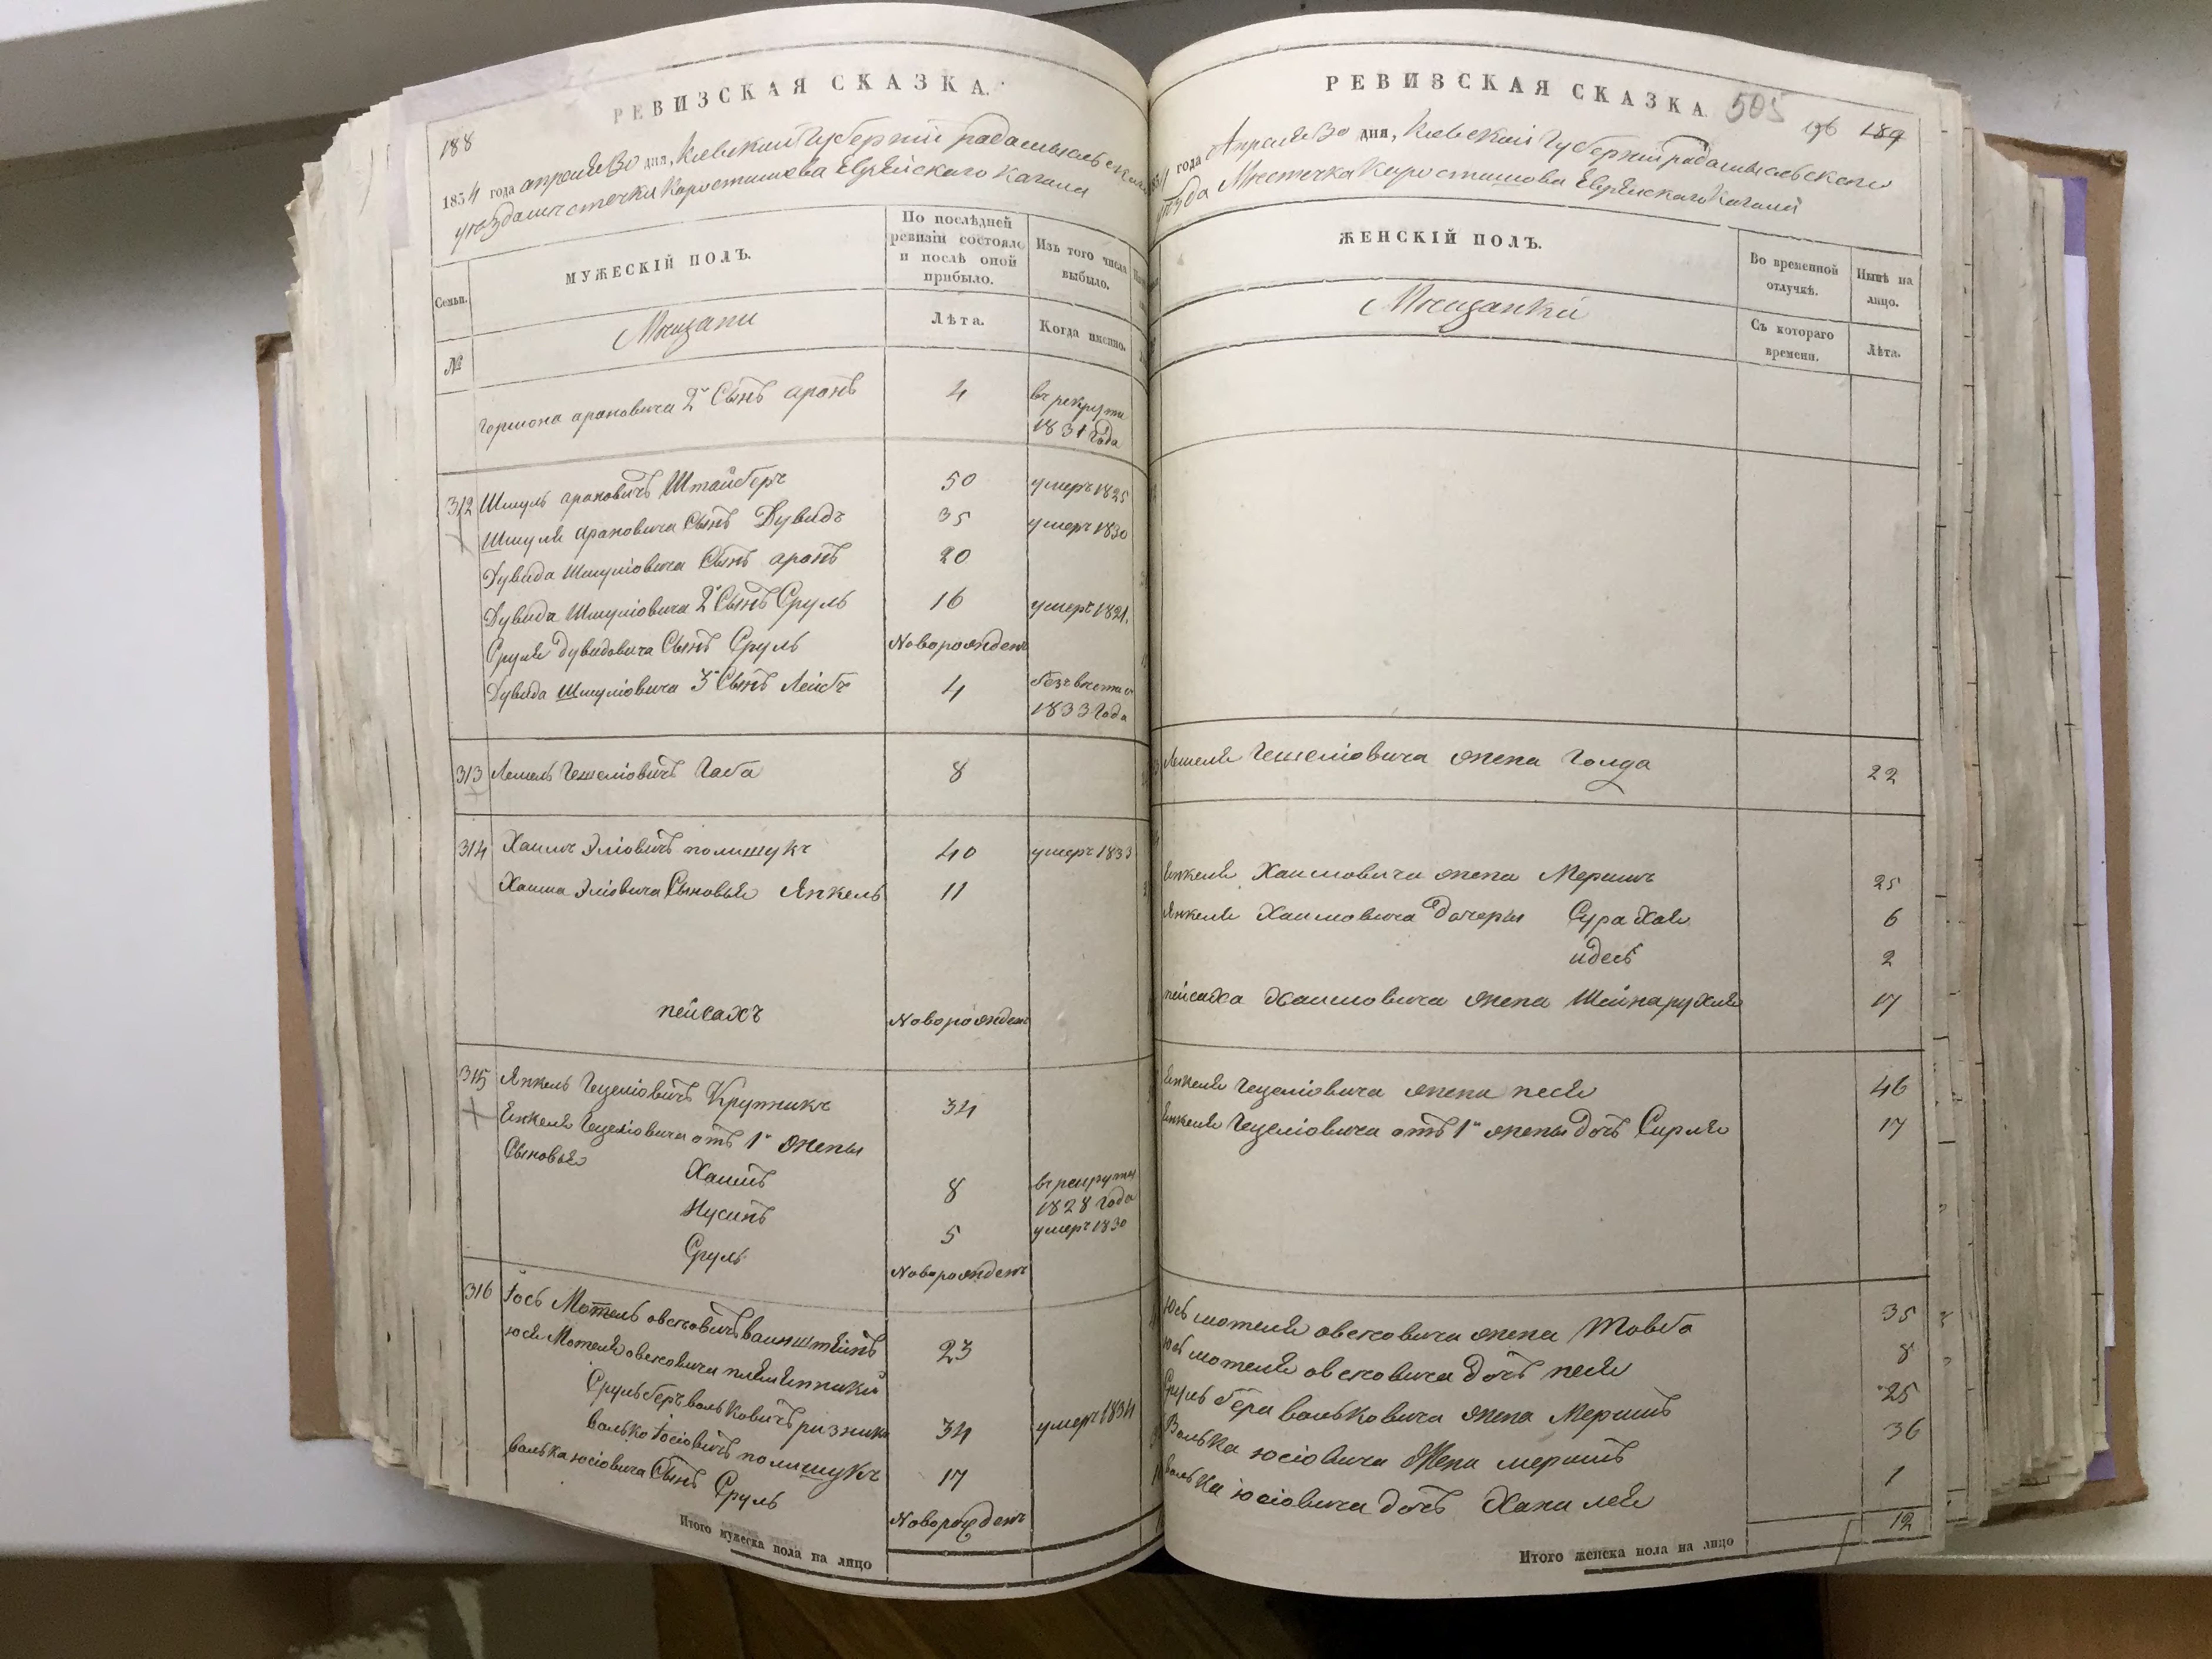 РЕВИЗСКАЯ СКАЗКА.
188
1834 года апреля 30 дня, Киевской Губернии радамысльской
уезда местечка Коростишова Еврейского Кагала
Семьи.
МУЖЕСКІЙ ПОЛЪ.
По послѣдней
ревизіи состояло
и послѣ оной
прибыло.
Изъ того числа
выбыло.
№
Мещане
Лѣта.
Когда именно.
Гершона ароновича 2й Сынъ аронъ
4
въ рекруты
1831 года
312
Шмуль ароновичъ Штайберъ
50
умеръ 1825
Шмуля ароновича Сынъ Дувидъ
35
умеръ 1830
Дувида Шмуліовича Сынъ аронъ
20
Дувида Шмуліовича 2й Сынъ Сруль
16
умеръ 1821.
Сруля дувидовича Сынъ Сруль
Новорожденъ
Дувида Шмуліовича 3й Сынъ Лейбъ
4
безъ вести
1833 года
313
Лемель Гешеліовичъ Габа
8
314
Хаимъ Эліовичъ полищукъ
40
умеръ 1833
Хаима Эліовича Сыновья Янкель
11
пейсахъ
Новорожденъ
315
Янкель Гецеліовичъ Крупникъ
34
Янкеля Гецеліовича отъ 1й жены
Сыновья
Хаимъ
8
въ рекруты
1828 года
Нусинъ
5
умеръ 1830
Сруль
Новорожденъ
316
Іось Мотель овсеовичъ ваинштейнъ
23
юся Мотеля овсеовича племянники
Срульберъ вольковичъ ризникъ
34
умеръ 1834
Волько Іосіовичъ полищукъ
17
Волька юсіовича Сынъ Сруль
Новорожденъ
Итого мужеска пола на лицо
РЕВИЗСКАЯ СКАЗКА
505
196
189
1834 года Апреля 30 дня, Киевской Губернии радамысльского
уезда Местечка Коростишова Еврейского Кагала
ЖЕНСКІЙ ПОЛЪ.
Во временной
отлучкѣ.
Нынѣ на
лицо.
Мещанки
Съ котораго
времени.
Лѣта.
Лемеля Гешеліовича жена Голда
22
Янкеля Хаимовича жена Меримъ
25
Янкеля Хаимовича дочеры Сура Хая
6
идесъ
2
пейсаха Хаимовича жена Шейнарухля
17
Янкеля Гецеліовича жена песя
46
Янкеля Гецеліовича отъ 1й жены дочь Сирля
17
юсь мотеля овсеовича жена Товба
35
юсь мотеля овсеовича дочь песя
8
Сруль бера вольковича жена Меримъ
25
Волька юсіовича Жена меримъ
36
волька юсіовича дочь Хана лея
1
Итого женска пола на лицо
12